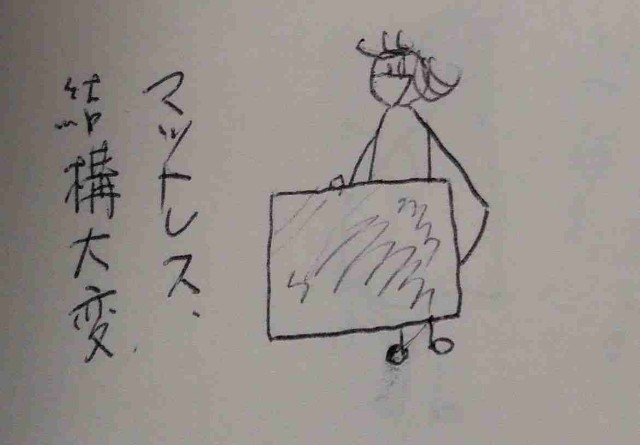 マットレス、
結構大変.